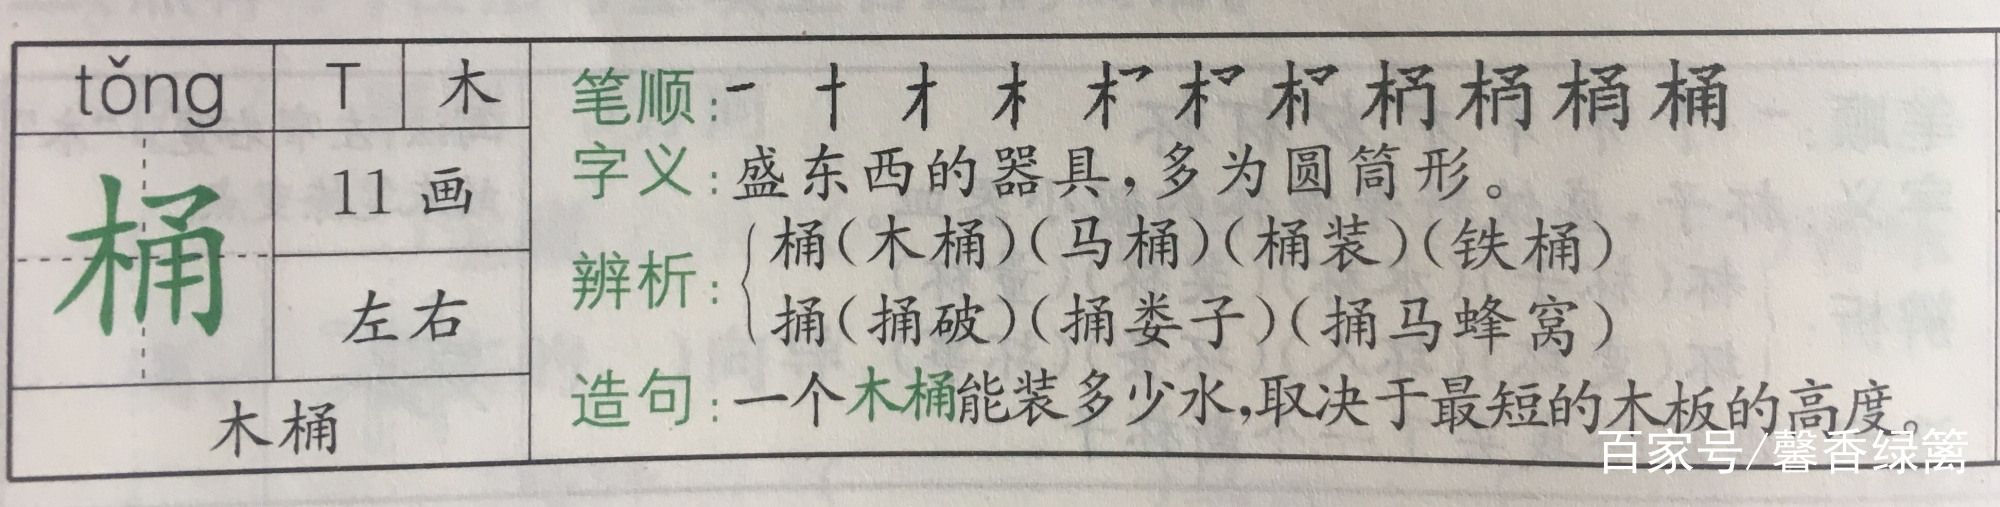 tǒng T 木
桶
11画
左右
木桶
笔顺:一 十 才 木 桶 桶
字义:盛东西的器具,多为圆筒形。
辨析:
桶(木桶)(马桶)(桶装)(铁桶)
捅(捅破)(捅娄子)(捅马蜂窝)
造句:一个木桶能装多少水,取决于最短的木板的高度。
百家号/馨香绿篱